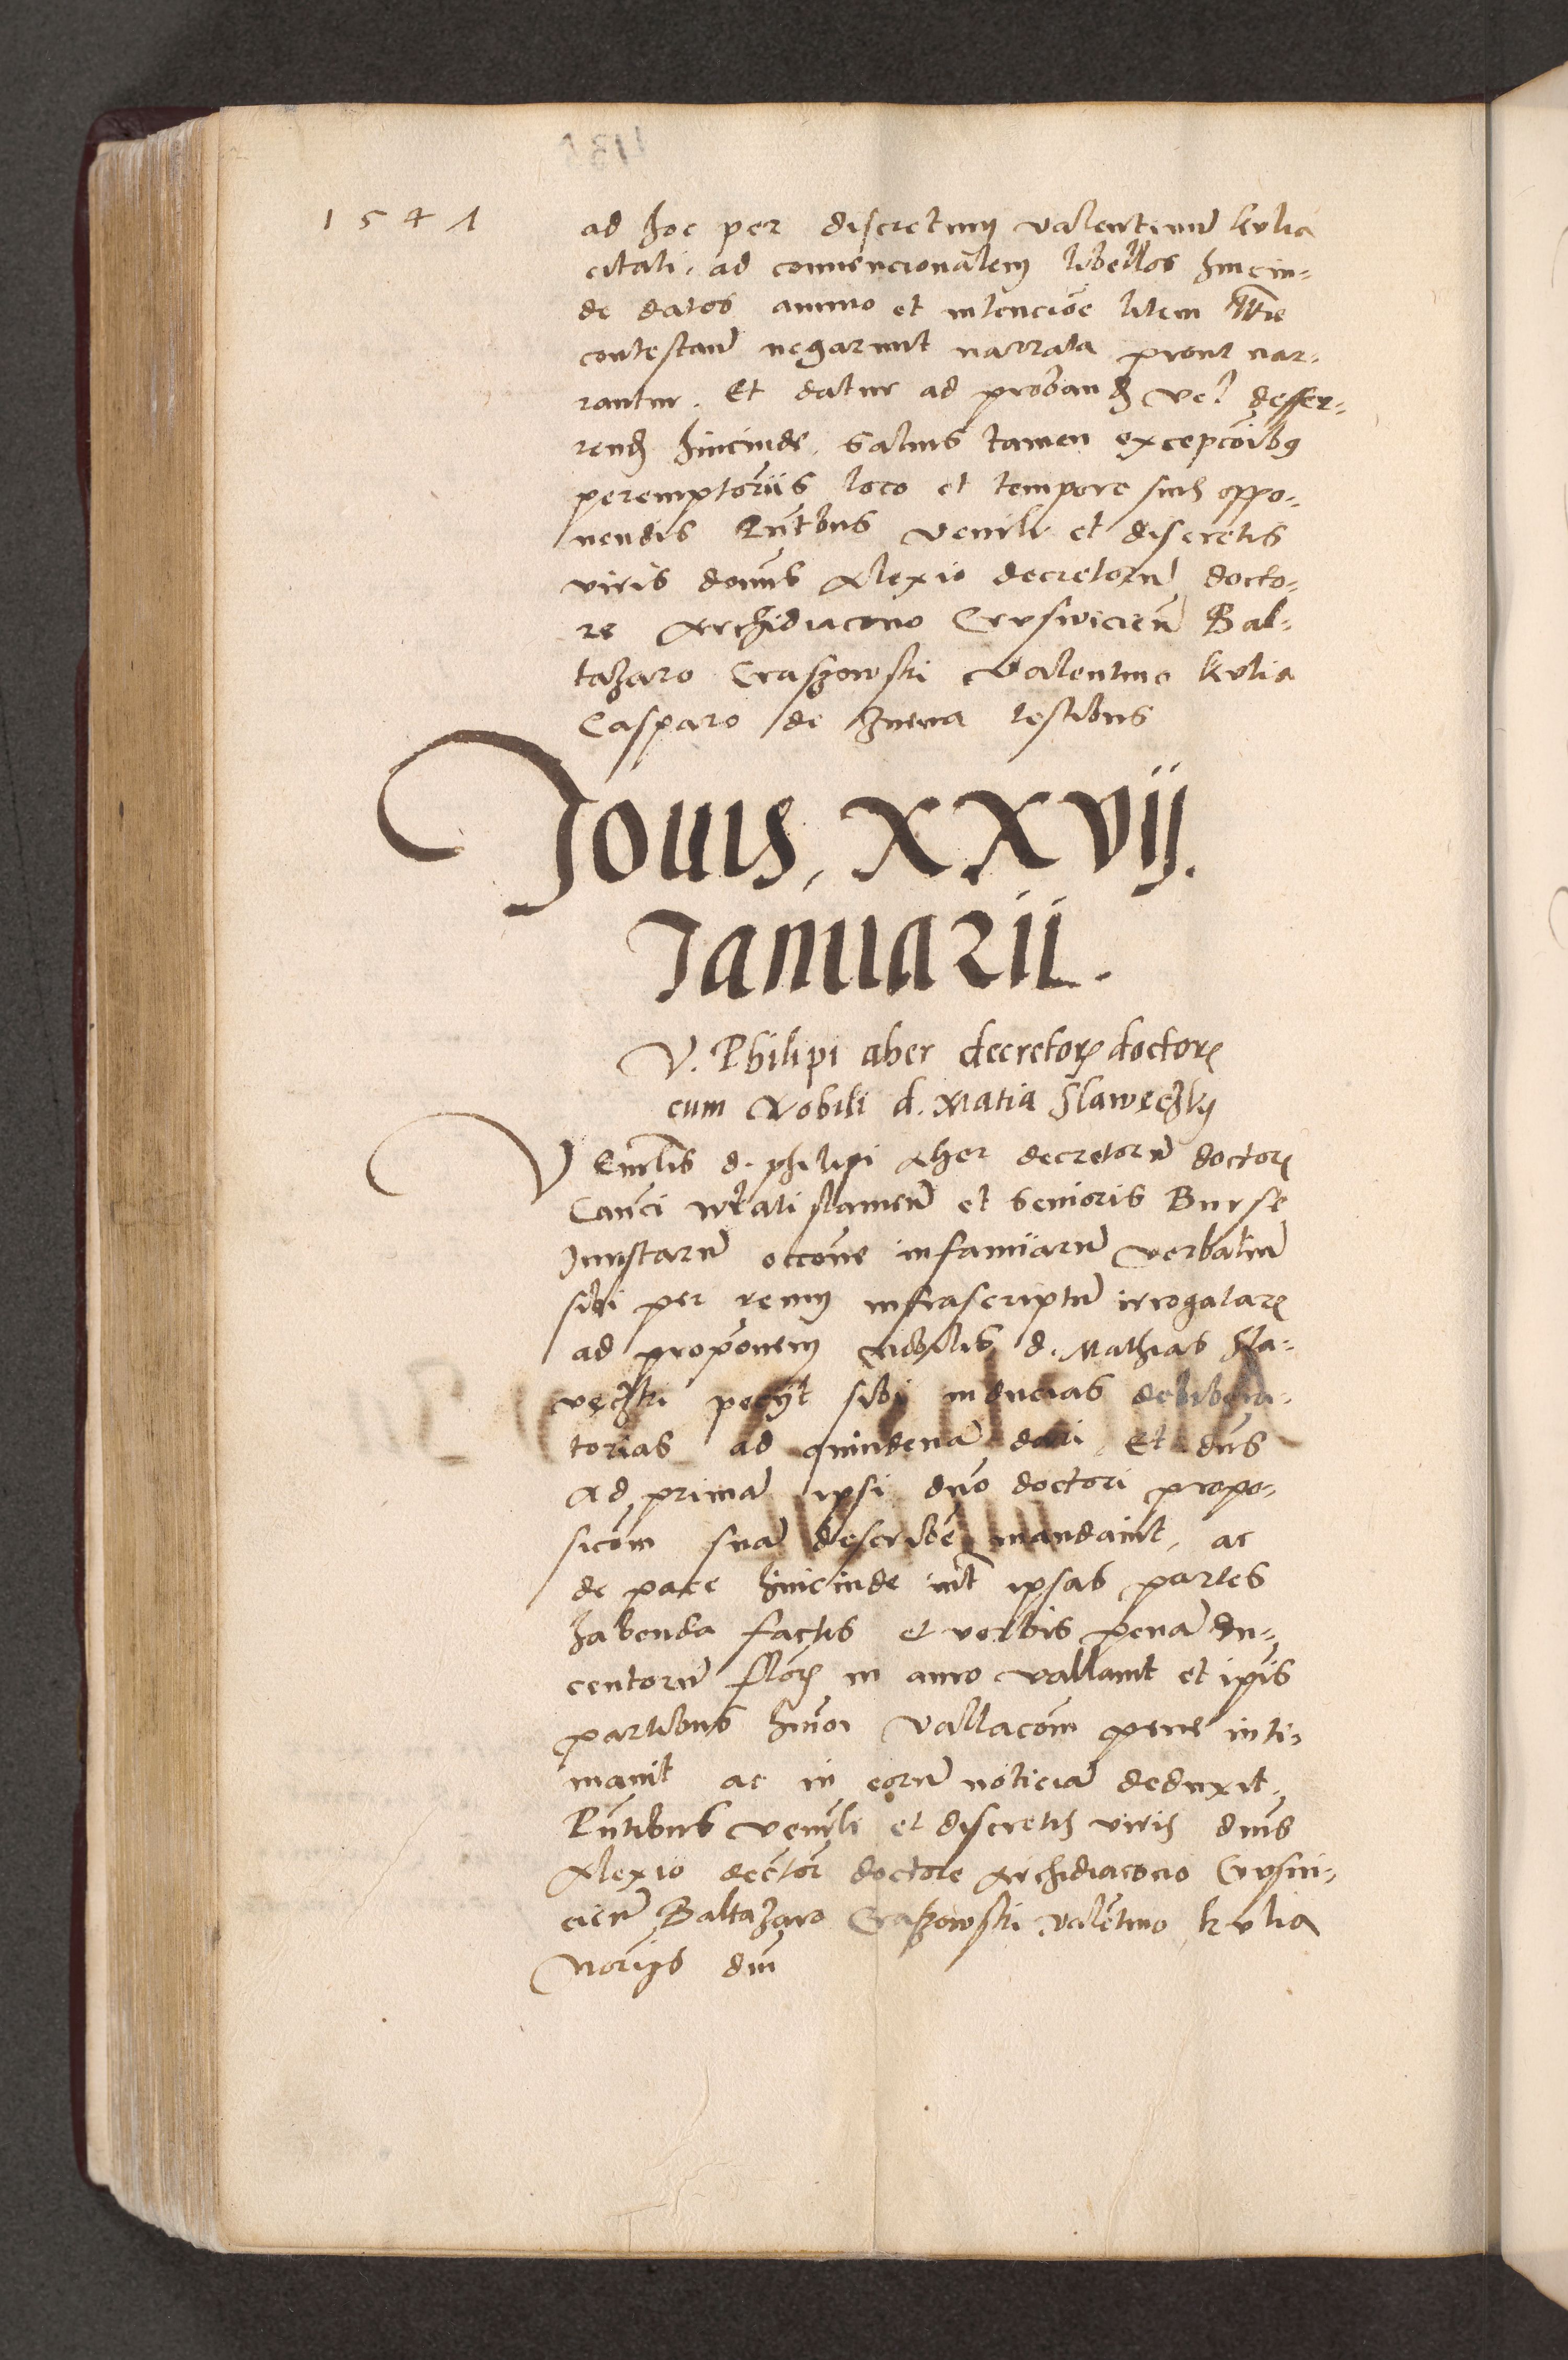 1541
ad hoc per discretum Valentinum kulia
citati, ad convencionalem libellos hincin-
de datos animo et intencione litem
contestan negarunt narrata prout nar-
rantur. Et datur ad proband vel deffer-
rend hincinde, salvis tamen excepcoibus
peremptoriis loco et tempore suis oppo-
nendis Pntbus venrli et discretis
viris domnis Alexio decretorum docto-
re Archidiacono Crusvicien Bal-
tazaro Craszowski Valentino kulia
Casparo de Znena testibus
Jouis, XXVII.
Januarii.
V. Philipi aher decretor doctor
cum Nobili d. Matia Slawęczky
Venrlis d. philipi Aher decretorum doctor
Canci wratislamen et senioris Burse
Juristarum occone infamiarum verbalium
sibi per reum infrascriptum irrogatar
ad proponem Nobilis d. Mathias Sla-
vęczki pecyt sibi inducias delibera-
torias ad quindenam dari, Et dns
Ad primam ipsi dno doctori propo-
sicom suam describe mandavit, ac
de pace hincinde int ipsas partes
habenda factis et verbis penam du-
centorum flor in auro vallavit et ipis
partibus hmoi vallacom pene inti-
mavit ac in eorum noticiam deduxit,
Pntibus venrli et discretis viris dnis
Alexio dector doctore Archidiacono Crusvi-
cien Baltazaro Craszowski valetino kulia
Noriis dni